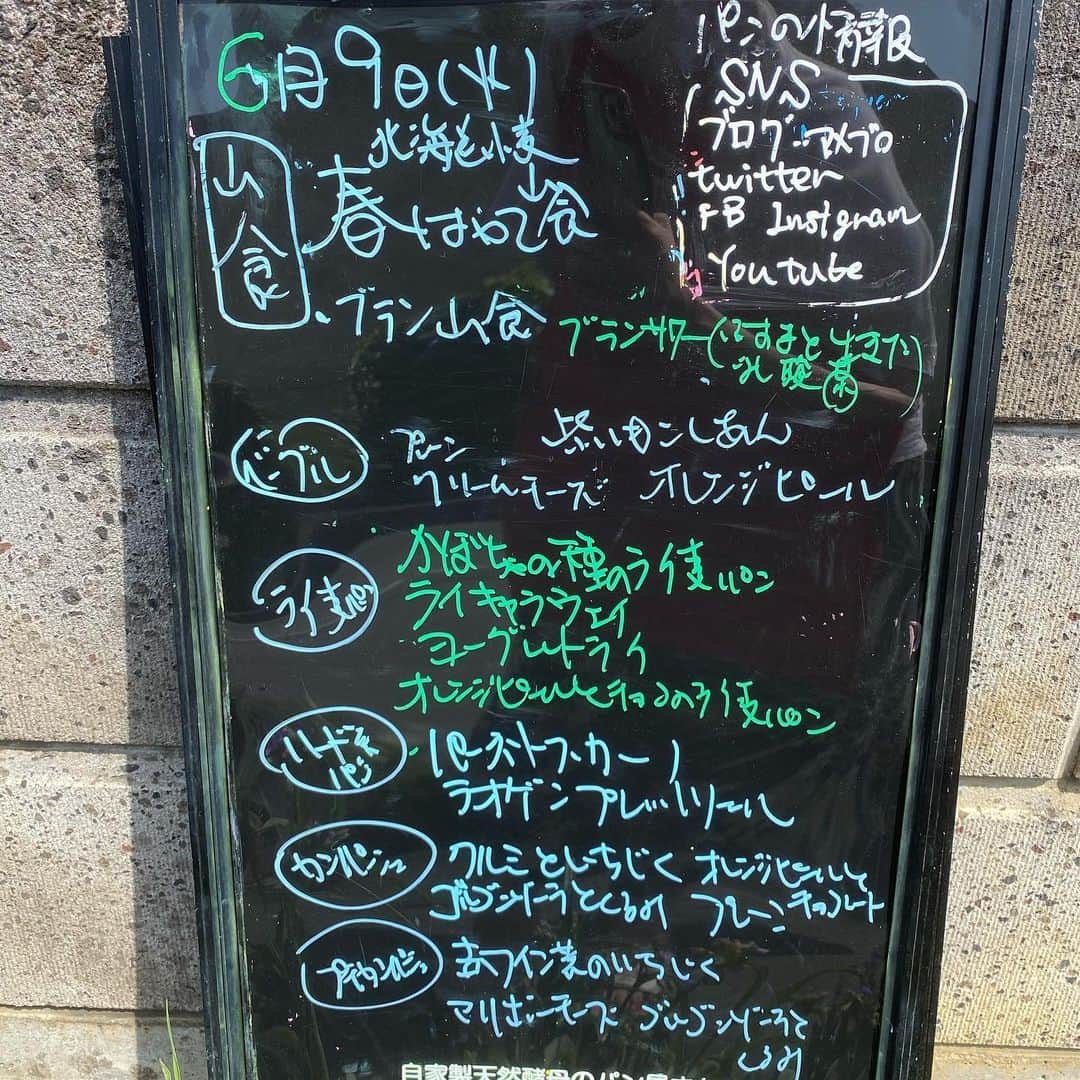 6月9日(火)
パンの情報
SNS
ブログ アメブロ
twitter
FB Instgram
Youtube
山食
北海道小麦
春はやて山食
・ブラン山食
ブランサワー(ふすまと生きた
乳酸菌)
ベーグル
プレーン 紫いもこしあん
クリームチーズ オレンジピール
ライ麦パン
かぼちゃの種のライ麦パン
ライキャラウェイ
ヨーグルトライ
オレンジピールとチョコのライ麦パン
ハード系
パン
ラオゲンプレッツリール
カンパーニュ
クルミといちじく オレンジピールと
チョコレート
ゴルゴンゾーラとくるみ プレーン
赤ワイン煮のいちじく
マリボーチーズ ゴルゴンゾーラと
くるみ
自家製天然酵母のパン屋